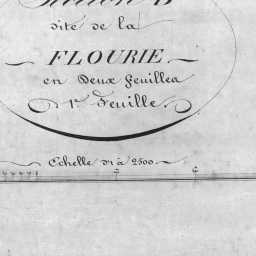 Section B
dite de la
FLOURIE
en Deux feuilles
1re Feuille
Echelle d'1 à 2500.